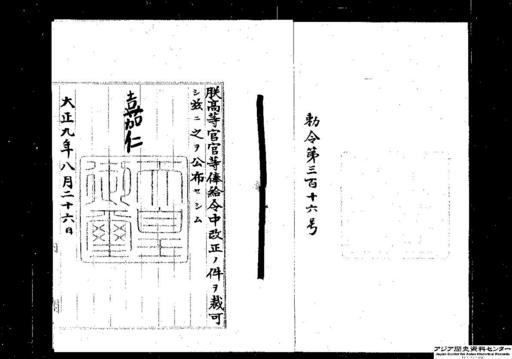 勅令第三百十六号
朕高等官官等俸給令中改正ノ件ヲ裁可
シ玆ニ之ヲ公布セシム
嘉仁
天皇御璽
大正九年八月二十六日
アジア歴史資料センター
Japan Center for Asian Historical Records